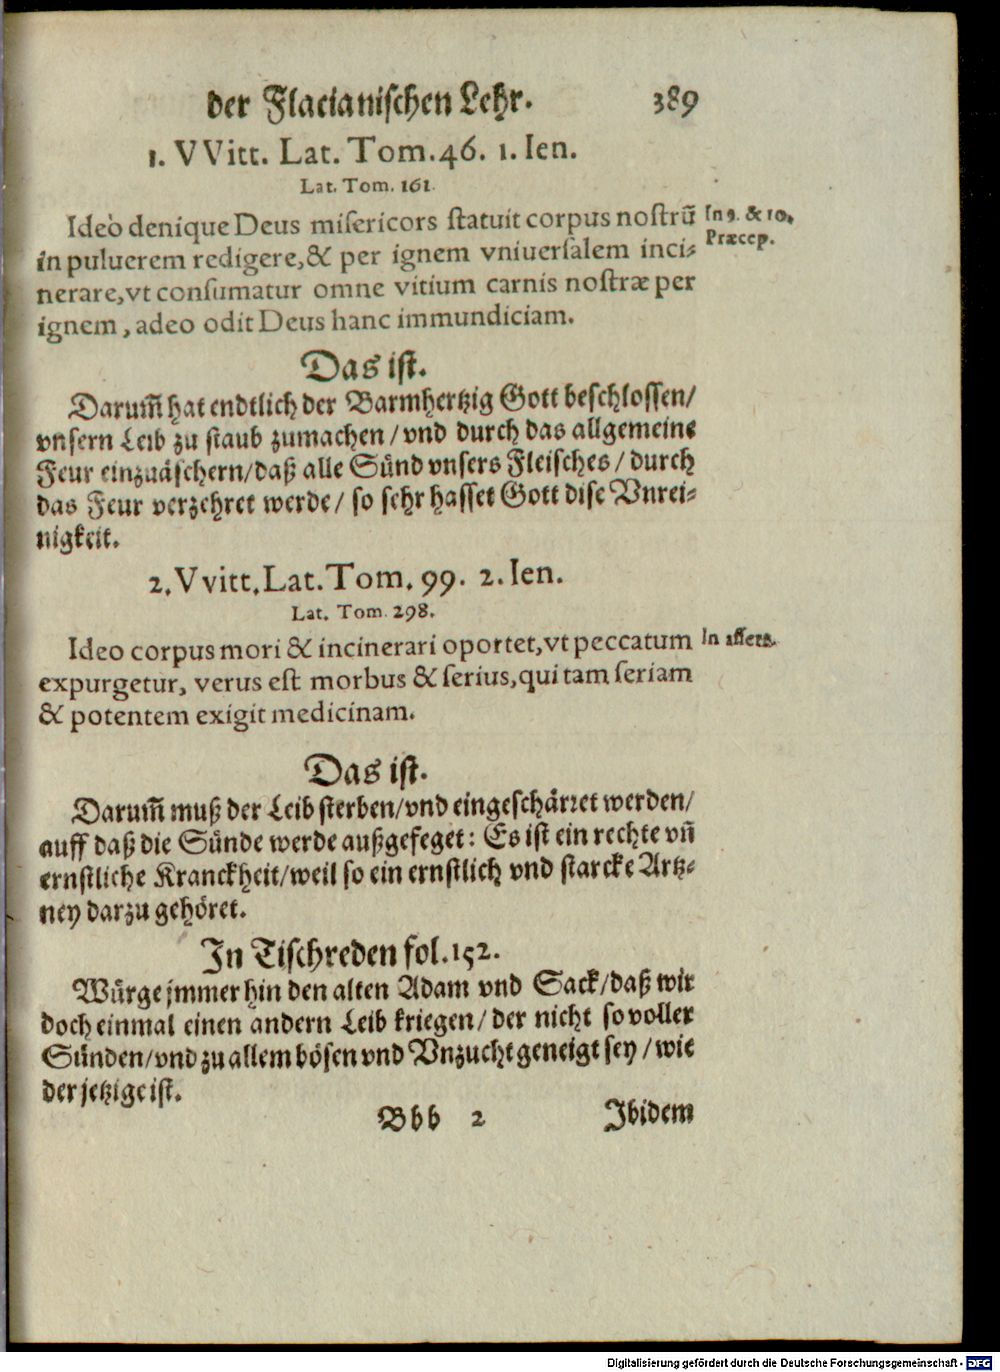 der Flacianischen Lehr. 389
1. VVitt. Lat. Tom. 46. 1. Ien.
Lat. Tom. 161.
Ideò denique Deus misericors statuit corpus nostrũ
In 9. & 10.
Præcep.
in puluerem redigere, & per ignem vniuersalem inci-
nerare, vt consumatur omne vitium carnis nostræ per
ignem, adeo odit Deus hanc immundiciam.
Das ist.
Darum̃ hat endtlich der Barmhertzig Gott beschlossen/
vnsern Leib zu staub zumachen/vnd durch das allgemeine
Feur einzuäschern/daß alle Sünd vnsers Fleisches/durch
das Feur verzehret werde/so sehr hasset Gott dise Vnrei-
nigkeit.
2. Vvitt. Lat. Tom. 99. 2. Ien.
Lat. Tom. 298.
Ideo corpus mori & incinerari oportet, vt peccatum
In assert.
expurgetur, verus est morbus & serius, qui tam seriam
& potentem exigit medicinam.
Das ist.
Darum̃ muß der Leib sterben/vnd eingeschärret werden/
auff daß die Sünde werde außgefeget: Es ist ein rechte vñ
ernstliche Kranckheit/weil so ein ernstlich vnd starcke Artz-
ney darzu gehöret.
In Tischreden fol. 152.
Würge jmmer hin den alten Adam vnd Sack/daß wir
doch einmal einen andern Leib kriegen/der nicht so voller
Sünden/vnd zu allem bösen vnd Vnzucht geneigt sey/wie
der jetzige ist.
Bbb 2 Ibidem
Digitalisierung gefördert durch die Deutsche Forschungsgemeinschaft - DFG